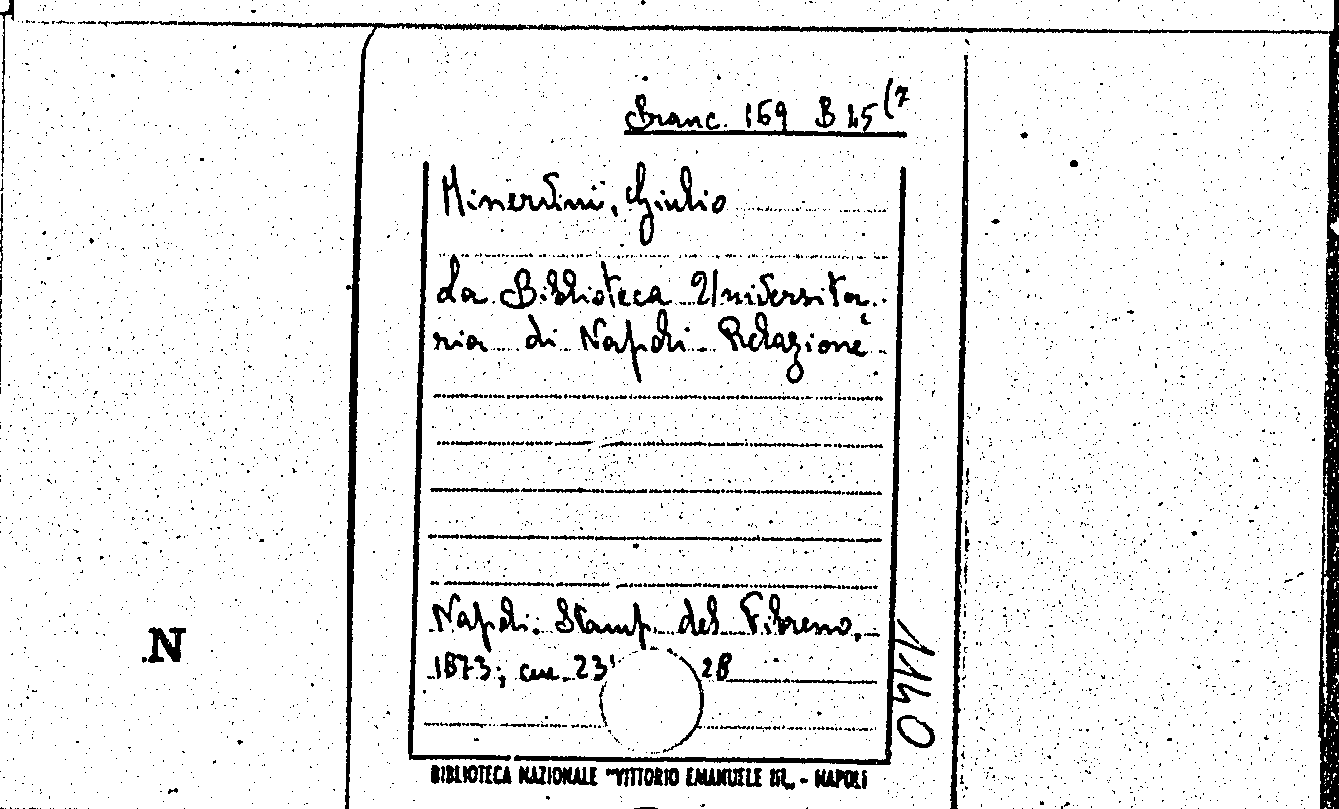 Branc. 169 B 45 (7
Minervini, Giulio
La Biblioteca Universita
ria di Napoli. Relazione.
Napoli. Stamp. del Fibreno,
1873; cm. 23 28
N
1140
BIBLIOTECA NAZIONALE "VITTORIO EMANUELE III„ - NAPOLI